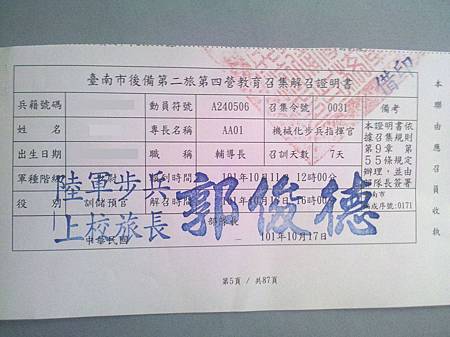 臺南市後備第二旅第四營教育召集解召證明書
兵籍號碼 動員符號 A240506 召集令號 0031 備考
姓名 專長名稱 AA01 機械化步兵指揮官
出生日期 職稱 輔導長 召訓天數 7天
軍種階級 報到時間 101年10月11日 12時00分
役別 訓儲預官 解召時間 16時00分
本證明書依
據召集規則
第9章第
55條規定
辦理,並由
部隊長簽署
臺南市
序號:0171
陸軍步兵
上校旅長 郭俊德
中華民國 101年10月17日
借印
本聯由應召員收執
第5頁 / 共87頁